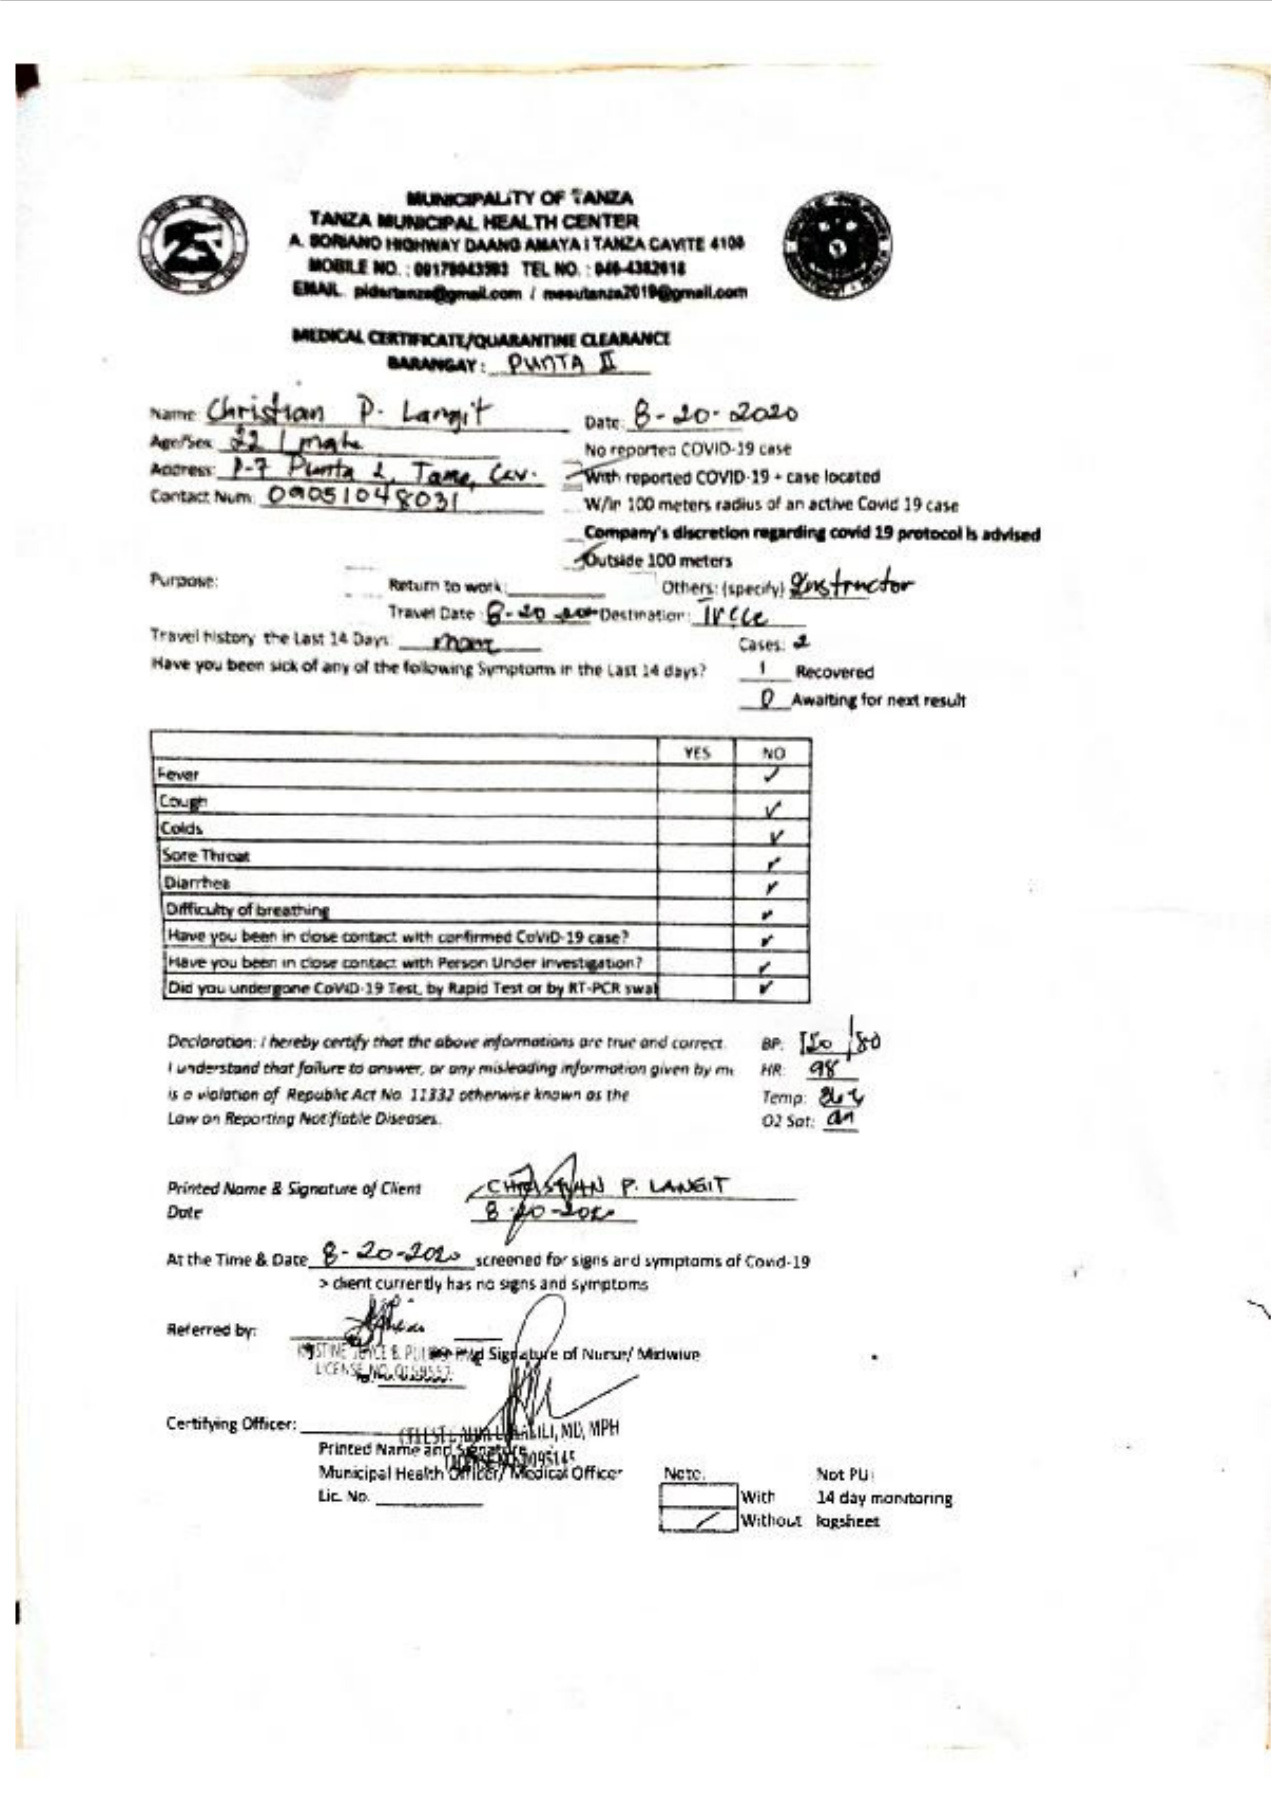 MUNICIPALITY OF TANZA
TANZA MUNICIPAL HEALTH CENTER
A. SORIANO HIGHWAY DAANG AMAYA I TANZA CAVITE 4108
MOBILE NO. : TEL NO. : 046-4382618
EMAIL. / mesutanza2019@gmail.com
MEDICAL CERTIFICATE/QUARANTINE CLEARANCE
BARANGAY: PUNTA II
Name: Christian P. Langit
Date: 8-20-2020
Age/Sex 22 / male
No reported COVID-19 case
Address: P-7 Punta 2, Cav.
With reported COVID-19 + case located
Contact Num: 09051048031
W/in 100 meters radius of an active Covid 19 case
Company's discretion regarding covid 19 protocol is advised
Outside 100 meters
Purpose: Return to work: Others: (specify) Instructor
Travel Date: 8-20 Destination:
Travel history the Last 14 Days: Cases: 2
Have you been sick of any of the following Symptoms in the Last 14 days? 1 Recovered
0 Awaiting for next result
YES NO
Fever ✓
Cough ✓
Colds ✓
Sore Throat ✓
Diarrhea ✓
Difficulty of breathing ✓
Have you been in close contact with confirmed CoViD-19 case? ✓
Have you been in close contact with Person Under Investigation? ✓
Did you undergone CoViD-19 Test, by Rapid Test or by RT-PCR swab ✓
Declaration: I hereby certify that the above informations are true and correct. BP: /80
I understand that failure to answer, or any misleading information given by me HR: 98
is a violation of Republic Act No. 11332 otherwise known as the Temp:
Law on Reporting Notifiable Diseases. O2 Sat:
Printed Name & Signature of Client CHRISTIAN P. LANGIT
Date 8-20-2020
At the Time & Date 8-20-2020 screened for signs and symptoms of Covid-19
> client currently has no signs and symptoms
Referred by:
Signature of Nurse/ Midwive
LICENSE NO.
Certifying Officer:
MD, MPH
Printed Name and Signature
Municipal Health Officer/ Medical Officer
Lic. No.
Note: Not PUI
With 14 day monitoring
Without logsheet